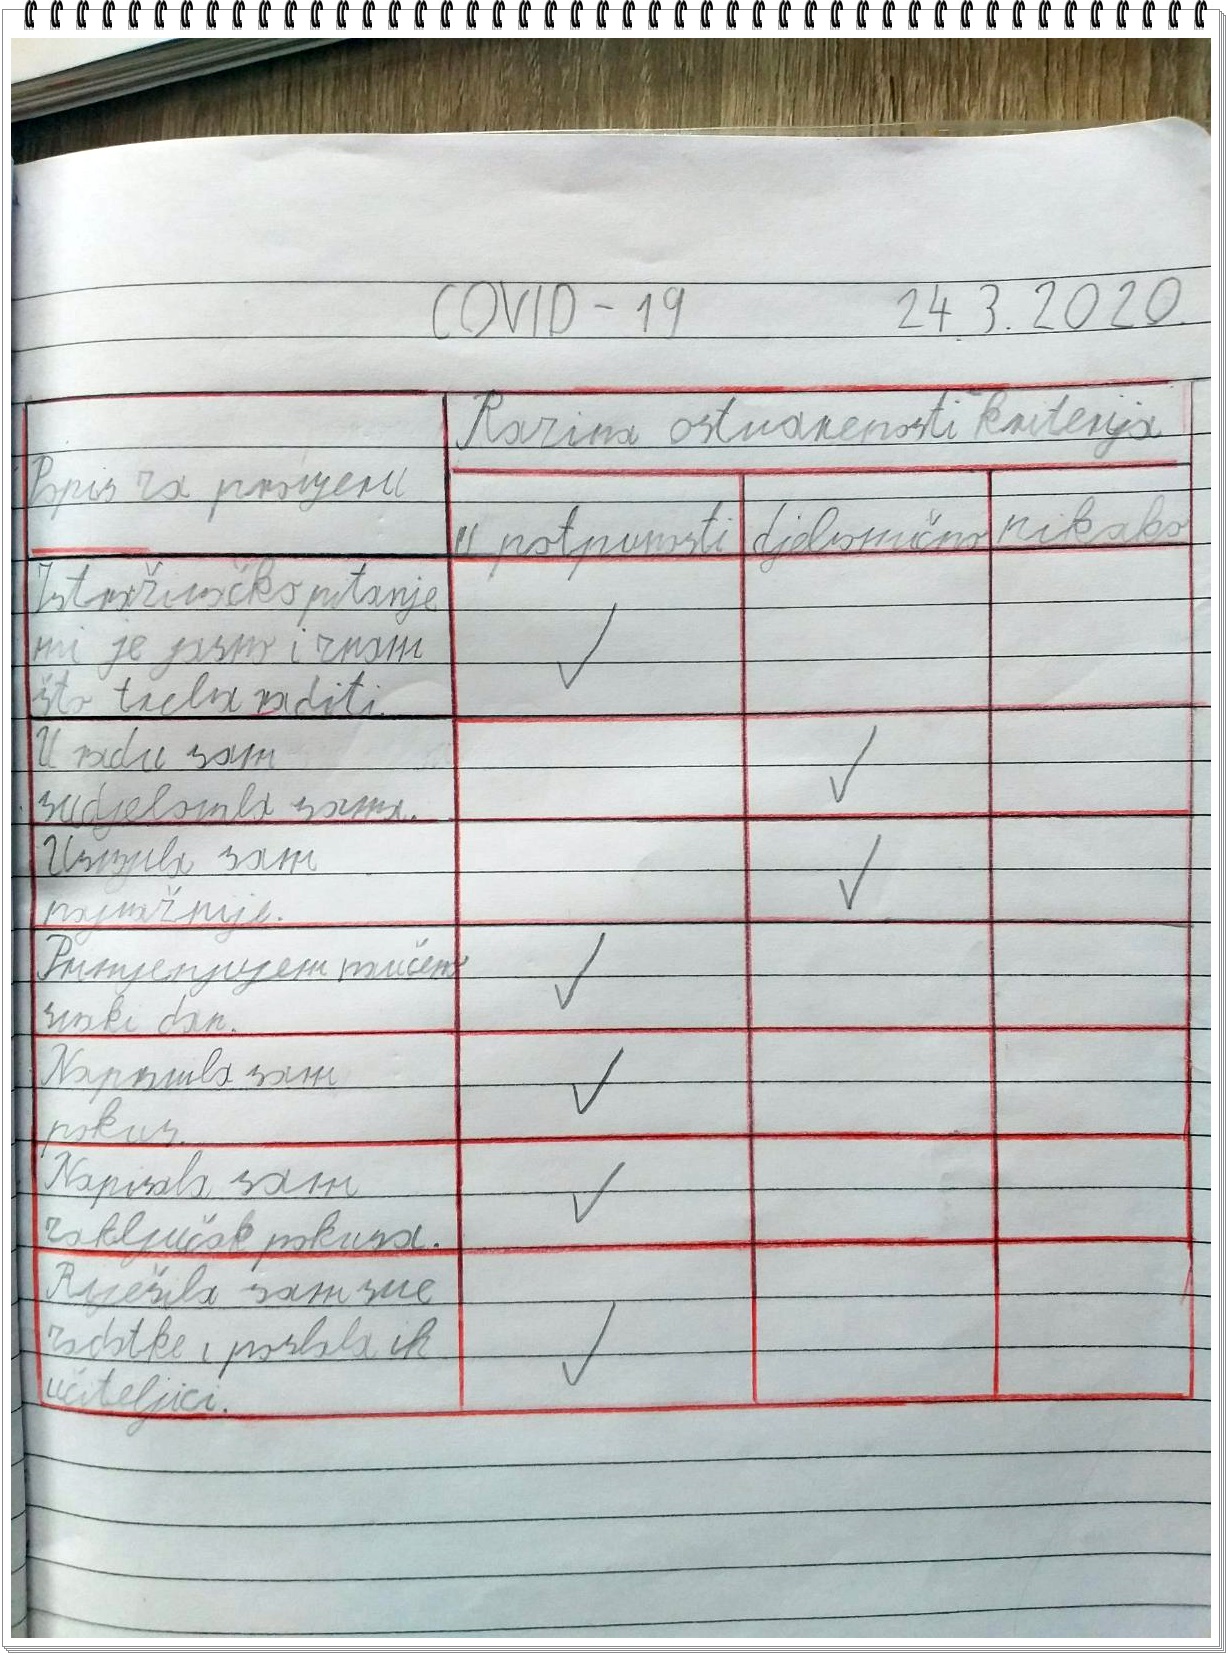 COVID-19 24.3.2020.
Razina ostvarenosti kriterija
Popis za provjeru
u potpunosti djelomično nikako
Istraživačko pitanje
mi je jasno i znam
što treba raditi.
U radu sam
sudjelovala sama.
Usvojila sam
najvažnije.
Primjenjujem naučeno
svaki dan.
Napravila sam
pokus.
Napisala sam
zaključak pokusa.
Riješila sam sve
zadatke i poslala ih
učiteljici.